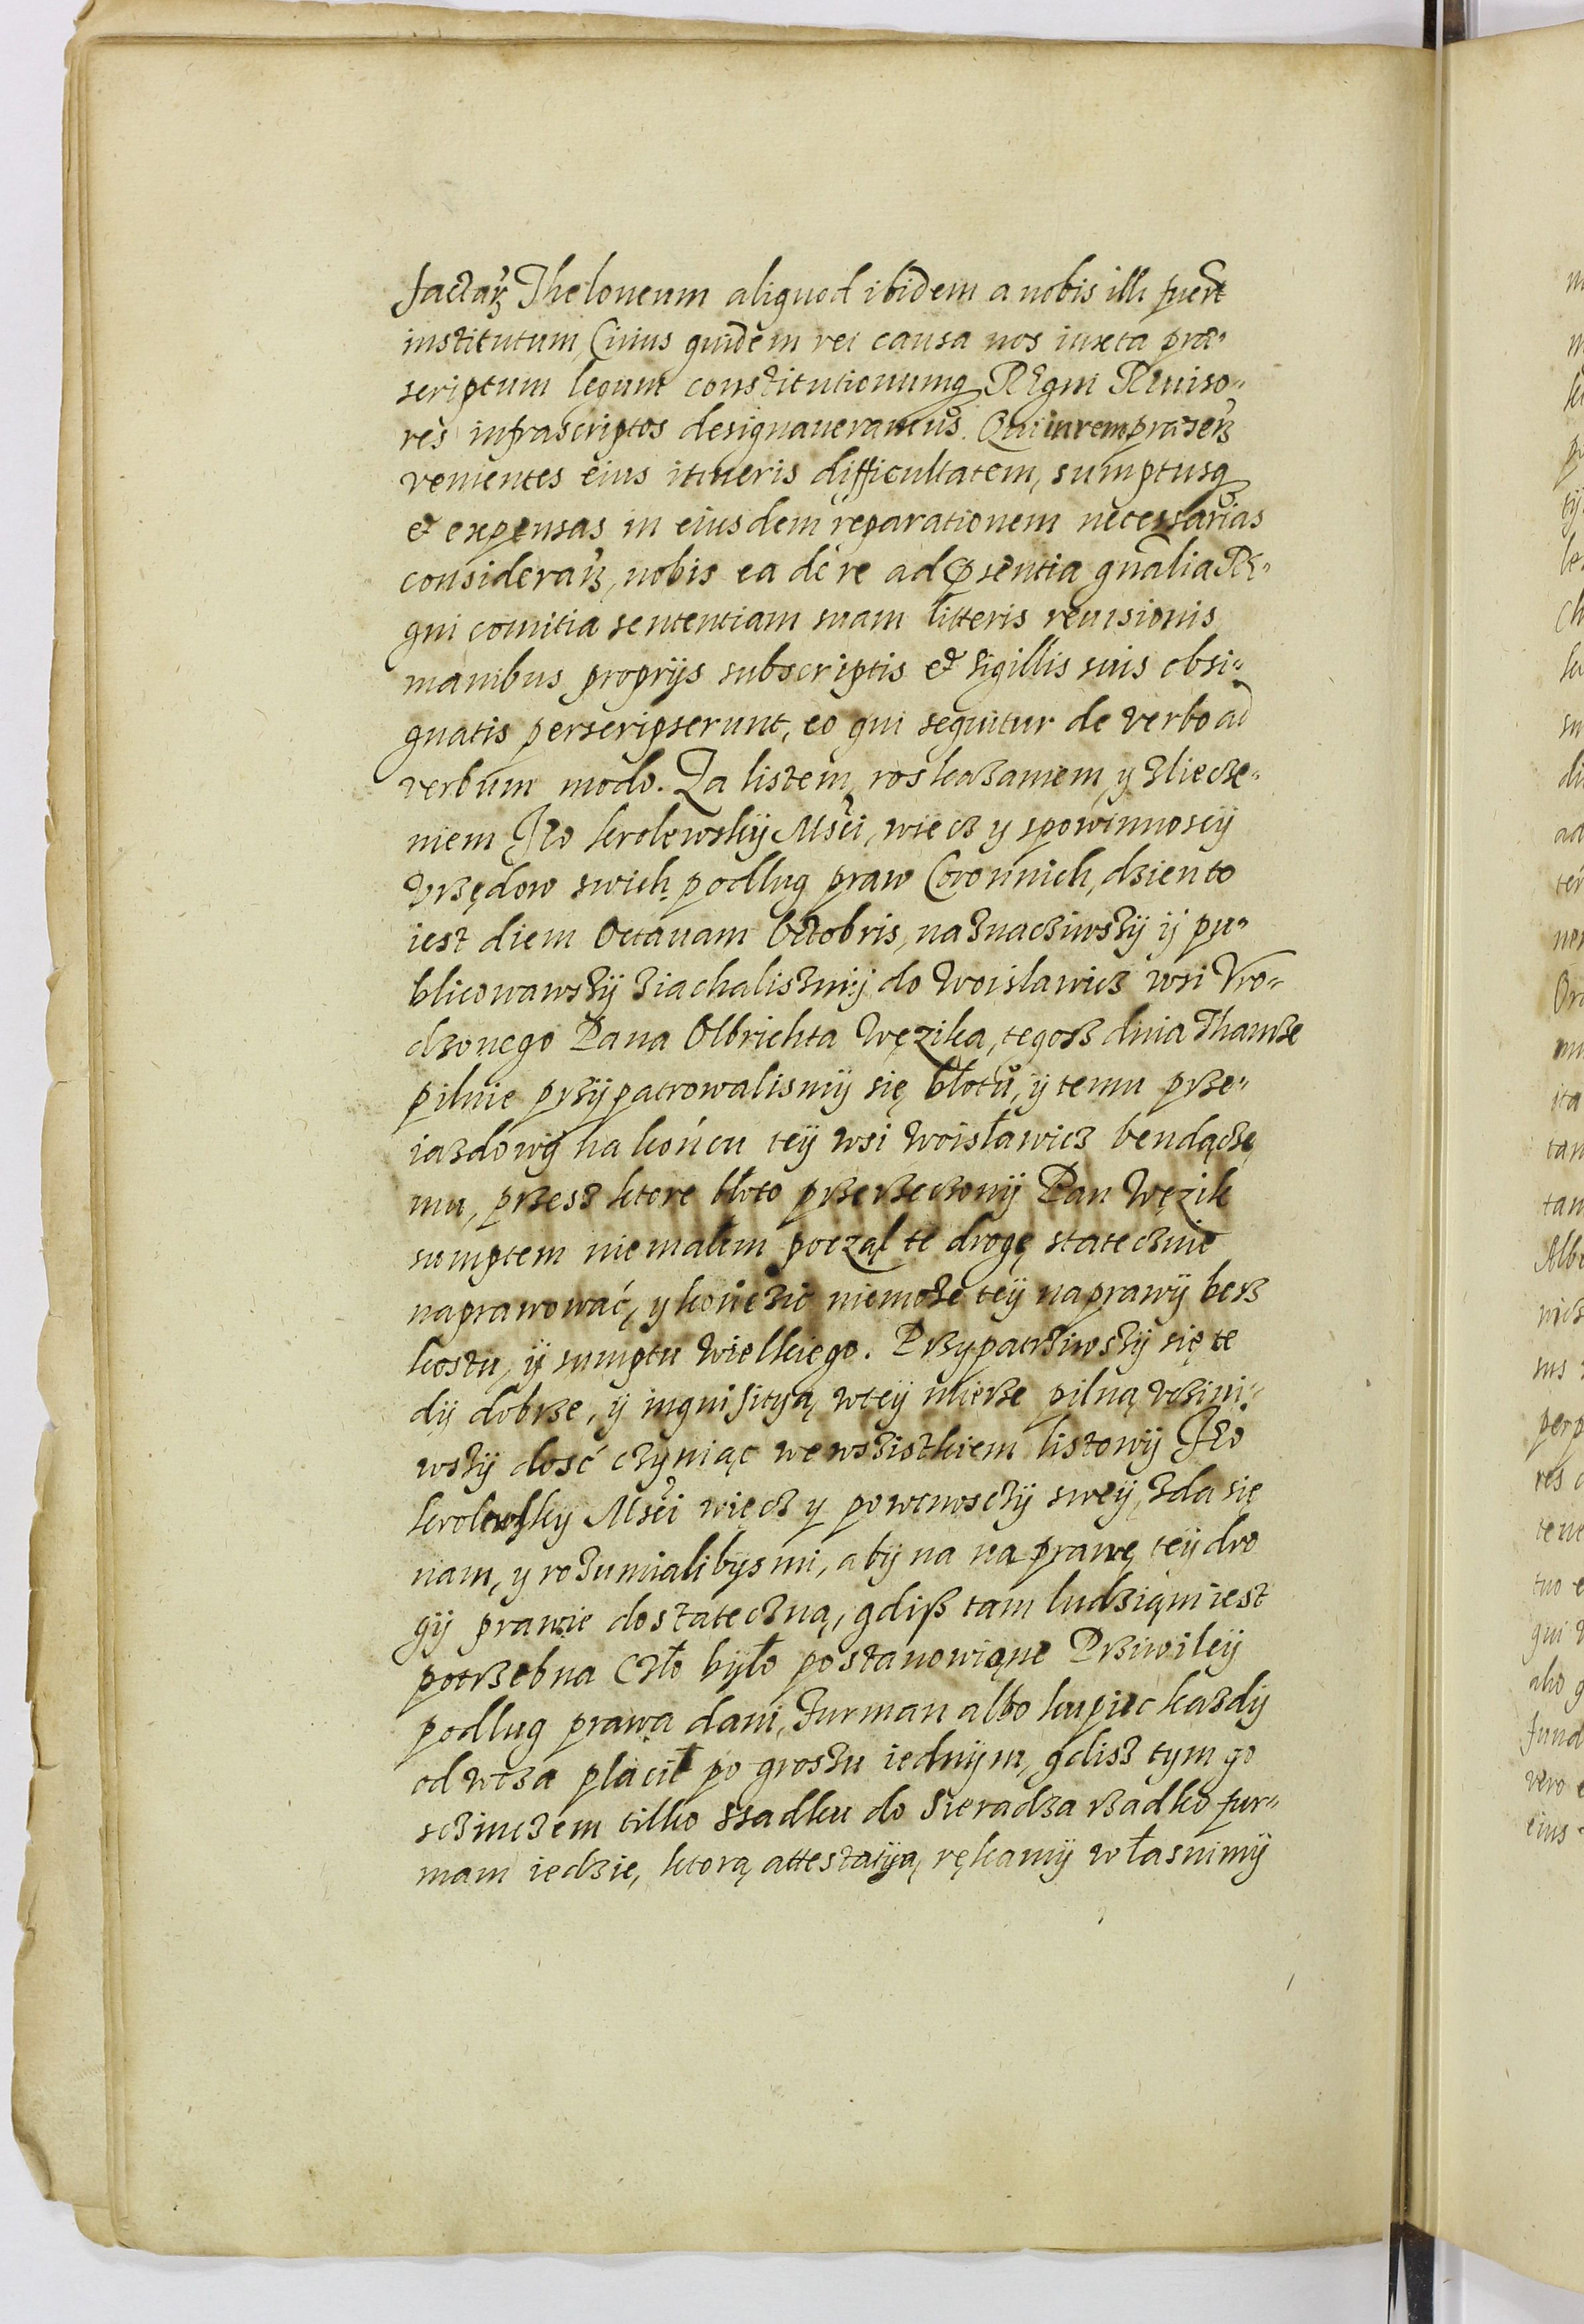 factaꝝ Theloneum aliquod ibidem a nobis illi fuerit
institutum, Cuius quidem rei causa nos iuxta præ„
scriptum legum constitutionumq Regni Reuiso„
res infrascriptos designaueramus. Qui in rem præsen
venientes eius itineris difficultatem, sumptusq
et expensas in eiusdem reparationem necessarias
consideraꝝ, nobis ea de re ad pñsentia gnãlia Re„
gni comitia sententiam suam litteris reuisionis
manibus proprijs subscriptis et sigillis suis obsi„
gnatis perscripserunt, eo qui sequitur de verbo ad
verbum modo. Za listem, roskazaniem, y zliecze„
niem Jeo krolewskÿ Msći, wiecz y spowinnoscÿ
Vrzędow swich podlug praw Coronnich, dzien to
iest diem Octauam Octobris, naznacziwszÿ ÿ pu„
blicowawszÿ ziachaliszmÿ do Woislawicz wsi Vro„
dzonego Pana Olbrichta Węzika, tegosz dnia Thamze
pilnie przÿpatrowalismÿ się błotu, ÿ temu prze„
iazdowÿ na końcu teÿ wsi Woisławicz bendączę
mu, przesz ktore błoto przerzeczonÿ Pan Węzik
sumptem niemałem począl te drogę statecznie
naprawować, y kończić niemoże teÿ naprawÿ besz
kosztu, ÿ sumptu wielkiego. Przypatrziwszÿ się te
dÿ dobrze, ÿ inquisitÿą wteÿ mierze pilną vczini„
wszÿ dość czyniąc we wszistkiem listowÿ Jeo
krolewskÿ Msći więcz y powinosczÿ sweÿ, zda się
nam, y rozumialibÿsmi, abÿ na naprawę teÿ dro
gÿ prawie dostateczną, gdisz tam ludziąm iest
potrzebna Czło bÿło postanowiąne Prziwileÿ
podlug prawa dani, Furman albo kupiec kazdÿ
od woza płacił po groszu iednÿm, gdisz tym go
sczinczem tilko Szadku do Sieradza rzadko fur„
mam iedzie, ktorą attestatÿą, rękamÿ własnimÿ